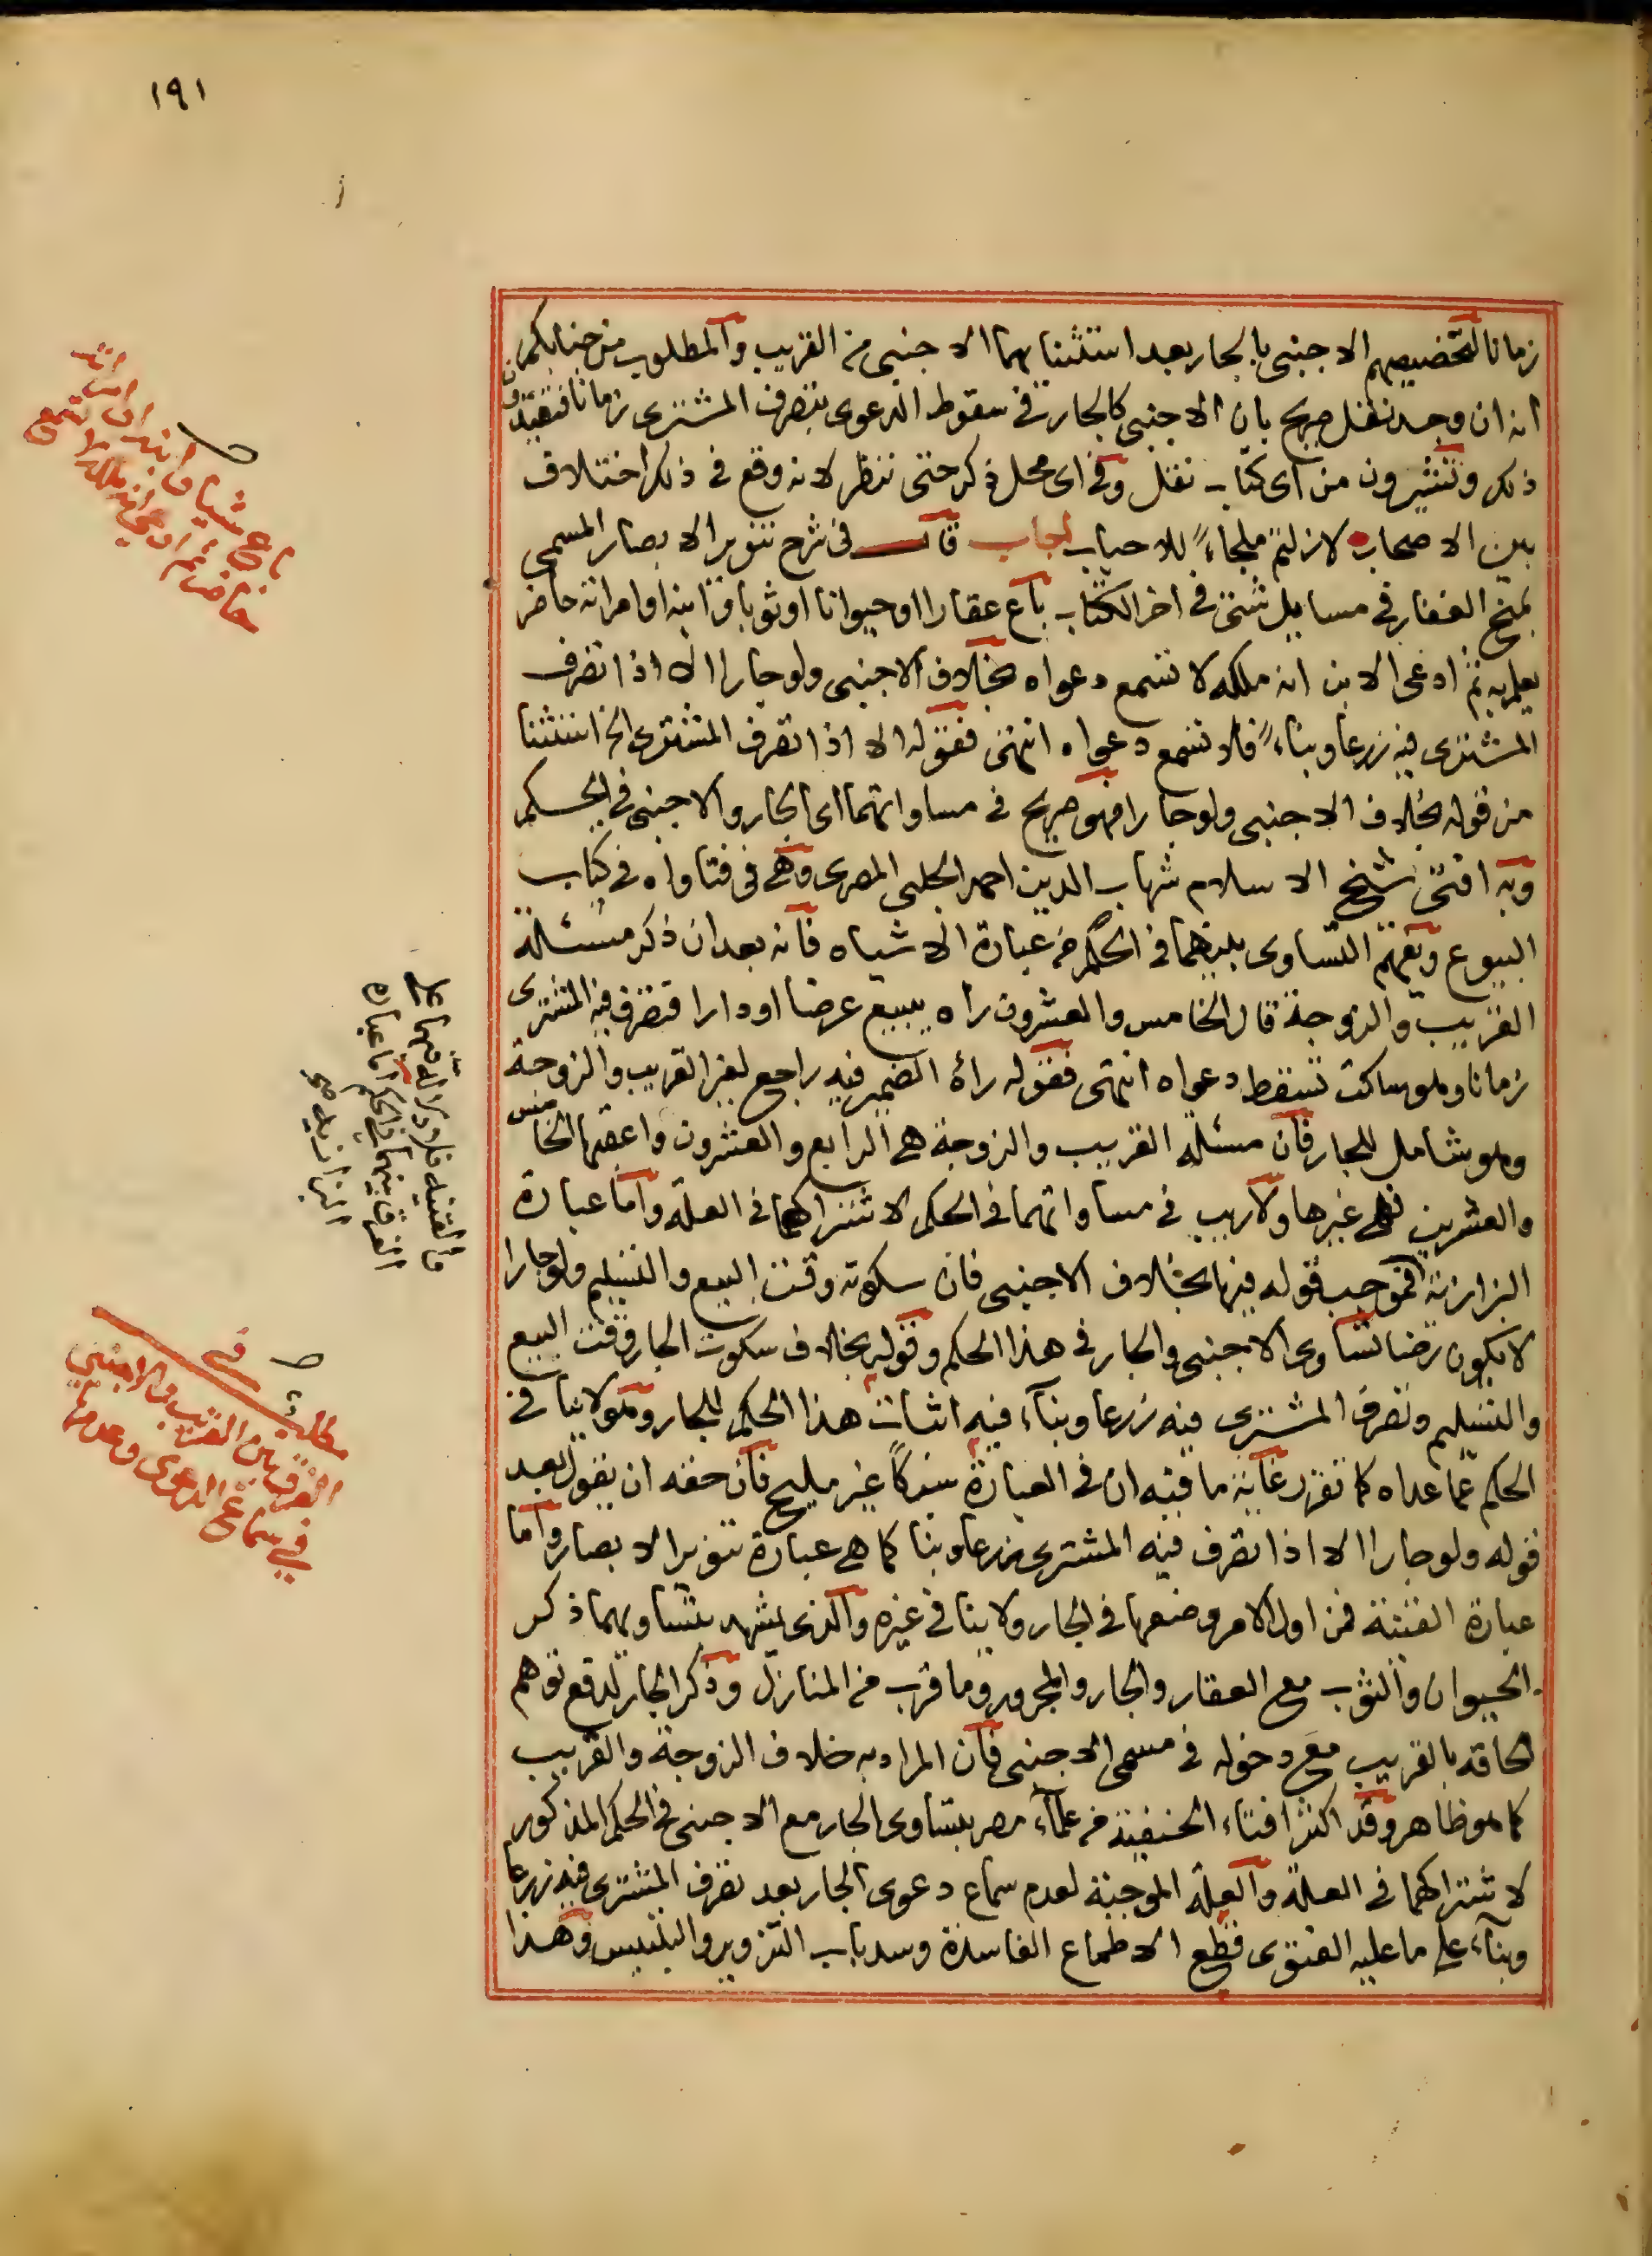 ١٩١
زمانا لتخصيصهم الاجنبى بالجار بعد استثنائهما الاجنبى من القريب والمطلوب من جنابكم
انه ان وجد نقل صريح بان الاجنبى كالجار فى سقوط الدعوى بتصرف المشترى زمانا فتفيدون
ذلك وتشيرون من اى كتاب نقل وفى اى محل ذكر حتى ننظر لانه وقع فى ذلك اختلاف
بين الاصحاب لازلتم ملجاءً للاحباب اجاب قال فى شرح تنوير الابصار المسمى
بمنح الغفار فى مسايل شتى فى اخر الكتاب باع عقارا او حيوانا او ثوبا وابنه او امراته حاضر
يعلم به ثم ادعى الابن انه ملكه لا تسمع دعواه بخلاف الاجنبى ولو جارا الا اذا تصرف
المشترى فيه زرعا وبناءً فلا تسمع دعواه انتهى فقوله الا اذا تصرف المشترى الخ استثنا
من قوله بخلاف الاجنبى ولو جارا فهو صريح فى مساواتهما اى الجار والاجنبى فى الحكم
وبه افتى شيخ الاسلام شهاب الدين احمد الحلبى المصرى وهى فى فتاواه فى كتاب
البيوع ويفهم التساوى بينهما فى الحكم من عبارة الاشباه فانه بعد ان ذكر مسئلة
القريب والزوجة قال الخامس والعشرون راه يبيع عرضا او دارا فتصرف فيه المشترى
زمانا وهو ساكت تسقط دعواه انتهى فقوله رأه الضمير فيه راجع لغير القريب والزوجة
وهو شامل للجار فان مسئلة القريب والزوجة هى الرابع والعشرون واعقبها الخامس
والعشرين فهى غيرها ولا ريب فى مساواتهما فى الحكم لاشتراكهما فى العلة واما عبارة
البزازية فموجب قوله فيها بخلاف الاجنبى فان سكوته وقت البيع والتسليم ولو جارا
لا يكون رضا تساوى الاجنبى والجار فى هذا الحكم وقوله بخلاف سكوت الجار وقت البيع
والتسليم وتصرف المشترى فيه زرعا وبنآء فيه اثبات هذا الحكم للجار وهو لا ينافى
الحكم عما عداه كما تقرر غاية ما فيه ان فى العبارة سبكاً غير مليح فان حقه ان يقول بعد
قوله ولو جارا الا اذا تصرف فيه المشترى زرعا وبنا كما هى عبارة تنوير الابصار واما
عبارة القنية فمن اول الامر وضعها فى الجار ولا ينافى غيره والذى يشهد بتساويهما ذكر
الحيوان والثوب مع العقار والجار والمجرور وما قرب من المنازل وذكر الجار لدفع توهم
الحاقه بالقريب مع دخوله فى مسمى الاجنبى فان المراد به خلاف الزوجة والقريب
كما هو ظاهر وقد اكثر افتاء الحنفية من علمآء مصر بتساوى الجار مع الاجنبى فى الحكم المذكور
لاشتراكهما فى العلة والعلة الموجبة لعدم سماع دعوى الجار بعد تصرف المشترى فيه زرعا
وبنآء على ما عليه الفتوى قطع الاطماع الفاسدة وسد باب التزوير والتلبيس وهذا
باع شيا وابنه او امراته
حاضر ثم ادعى انه ملكه لا تسمع
مطلب فى
الفرق بين القريب والاجنبى
فى سماع الدعوى وعدمها